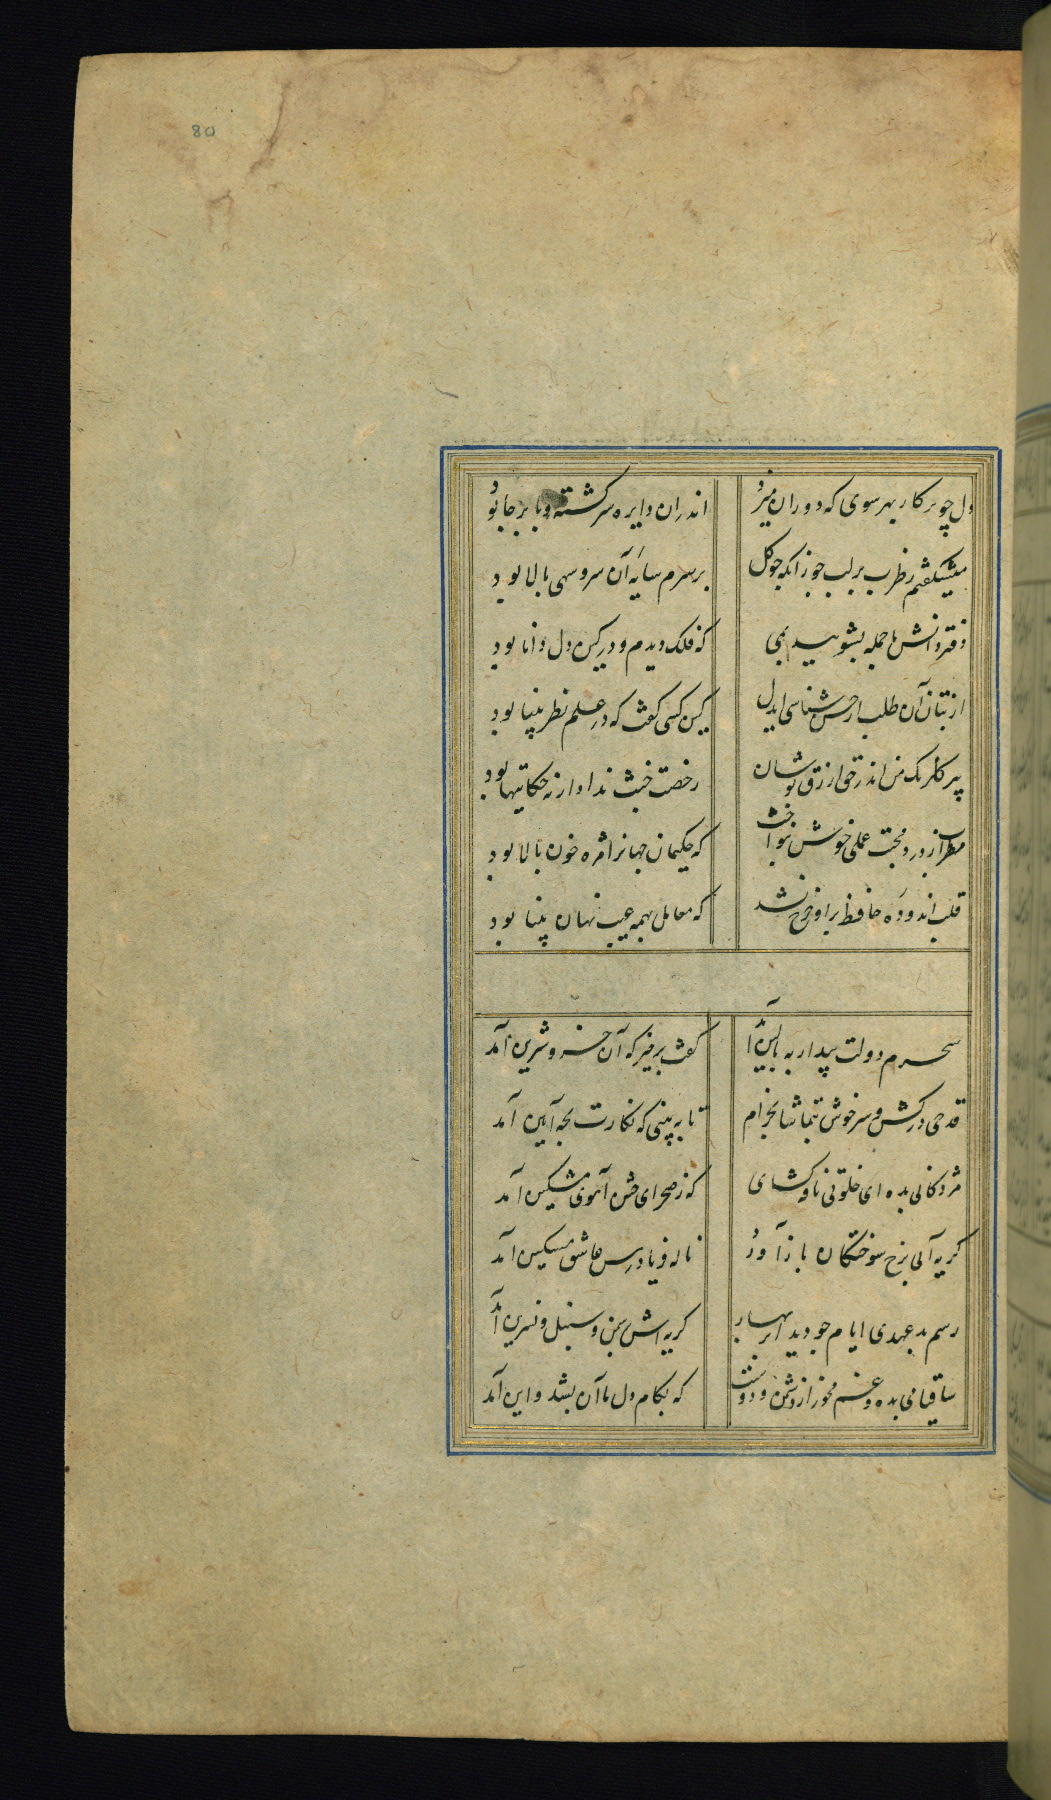 80
دل چو پرکار بهر سوی که دوران میزد اندران دایره سرگشته و پا بر جا بود
میشکفتم ز طرب بر لب جو زانکه چو گل بر سرم سایه آن سرو سهی بالا بود
دفتر دانش ما جمله بشویید بمی که فلک دیدم و در کین دل دانا بود
از بتان آن طلب ار حسن شناسی ایدل کین کسی گفت که در علم نظر بینا بود
پیر گلرنگ من اندر حق ازرق پوشان رخصت خبث نداد ار نه حکایتها بود
مطرب از درد محبت عملی خوش بنواخت که حکیمان جهانرا مژه خون پالا بود
قلب اندوده حافظ بر او خرج نشد که معامل بهمه عیب نهان بینا بود
سحرم دولت بیدار به بالین آمد گفت برخیز که آن خسرو شیرین آمد
قدحی درکش و سرخوش بتماشا بخرام تا به بینی که نگارت بچه آیین آمد
مژدگانی بده ای خلوتی نافه گشای که ز صحرای ختن آهوی مشکین آمد
گریه آبی برخ سوختگان باز آورد ناله فریادرس عاشق مسکین آمد
رسم بد عهدی ایام چو دید ابر بهار گریه اش بر سمن و سنبل و نسرین آمد
ساقیا می بده و غم مخور از دشمن و دوست که بکام دل ما آن بشد و این آمد